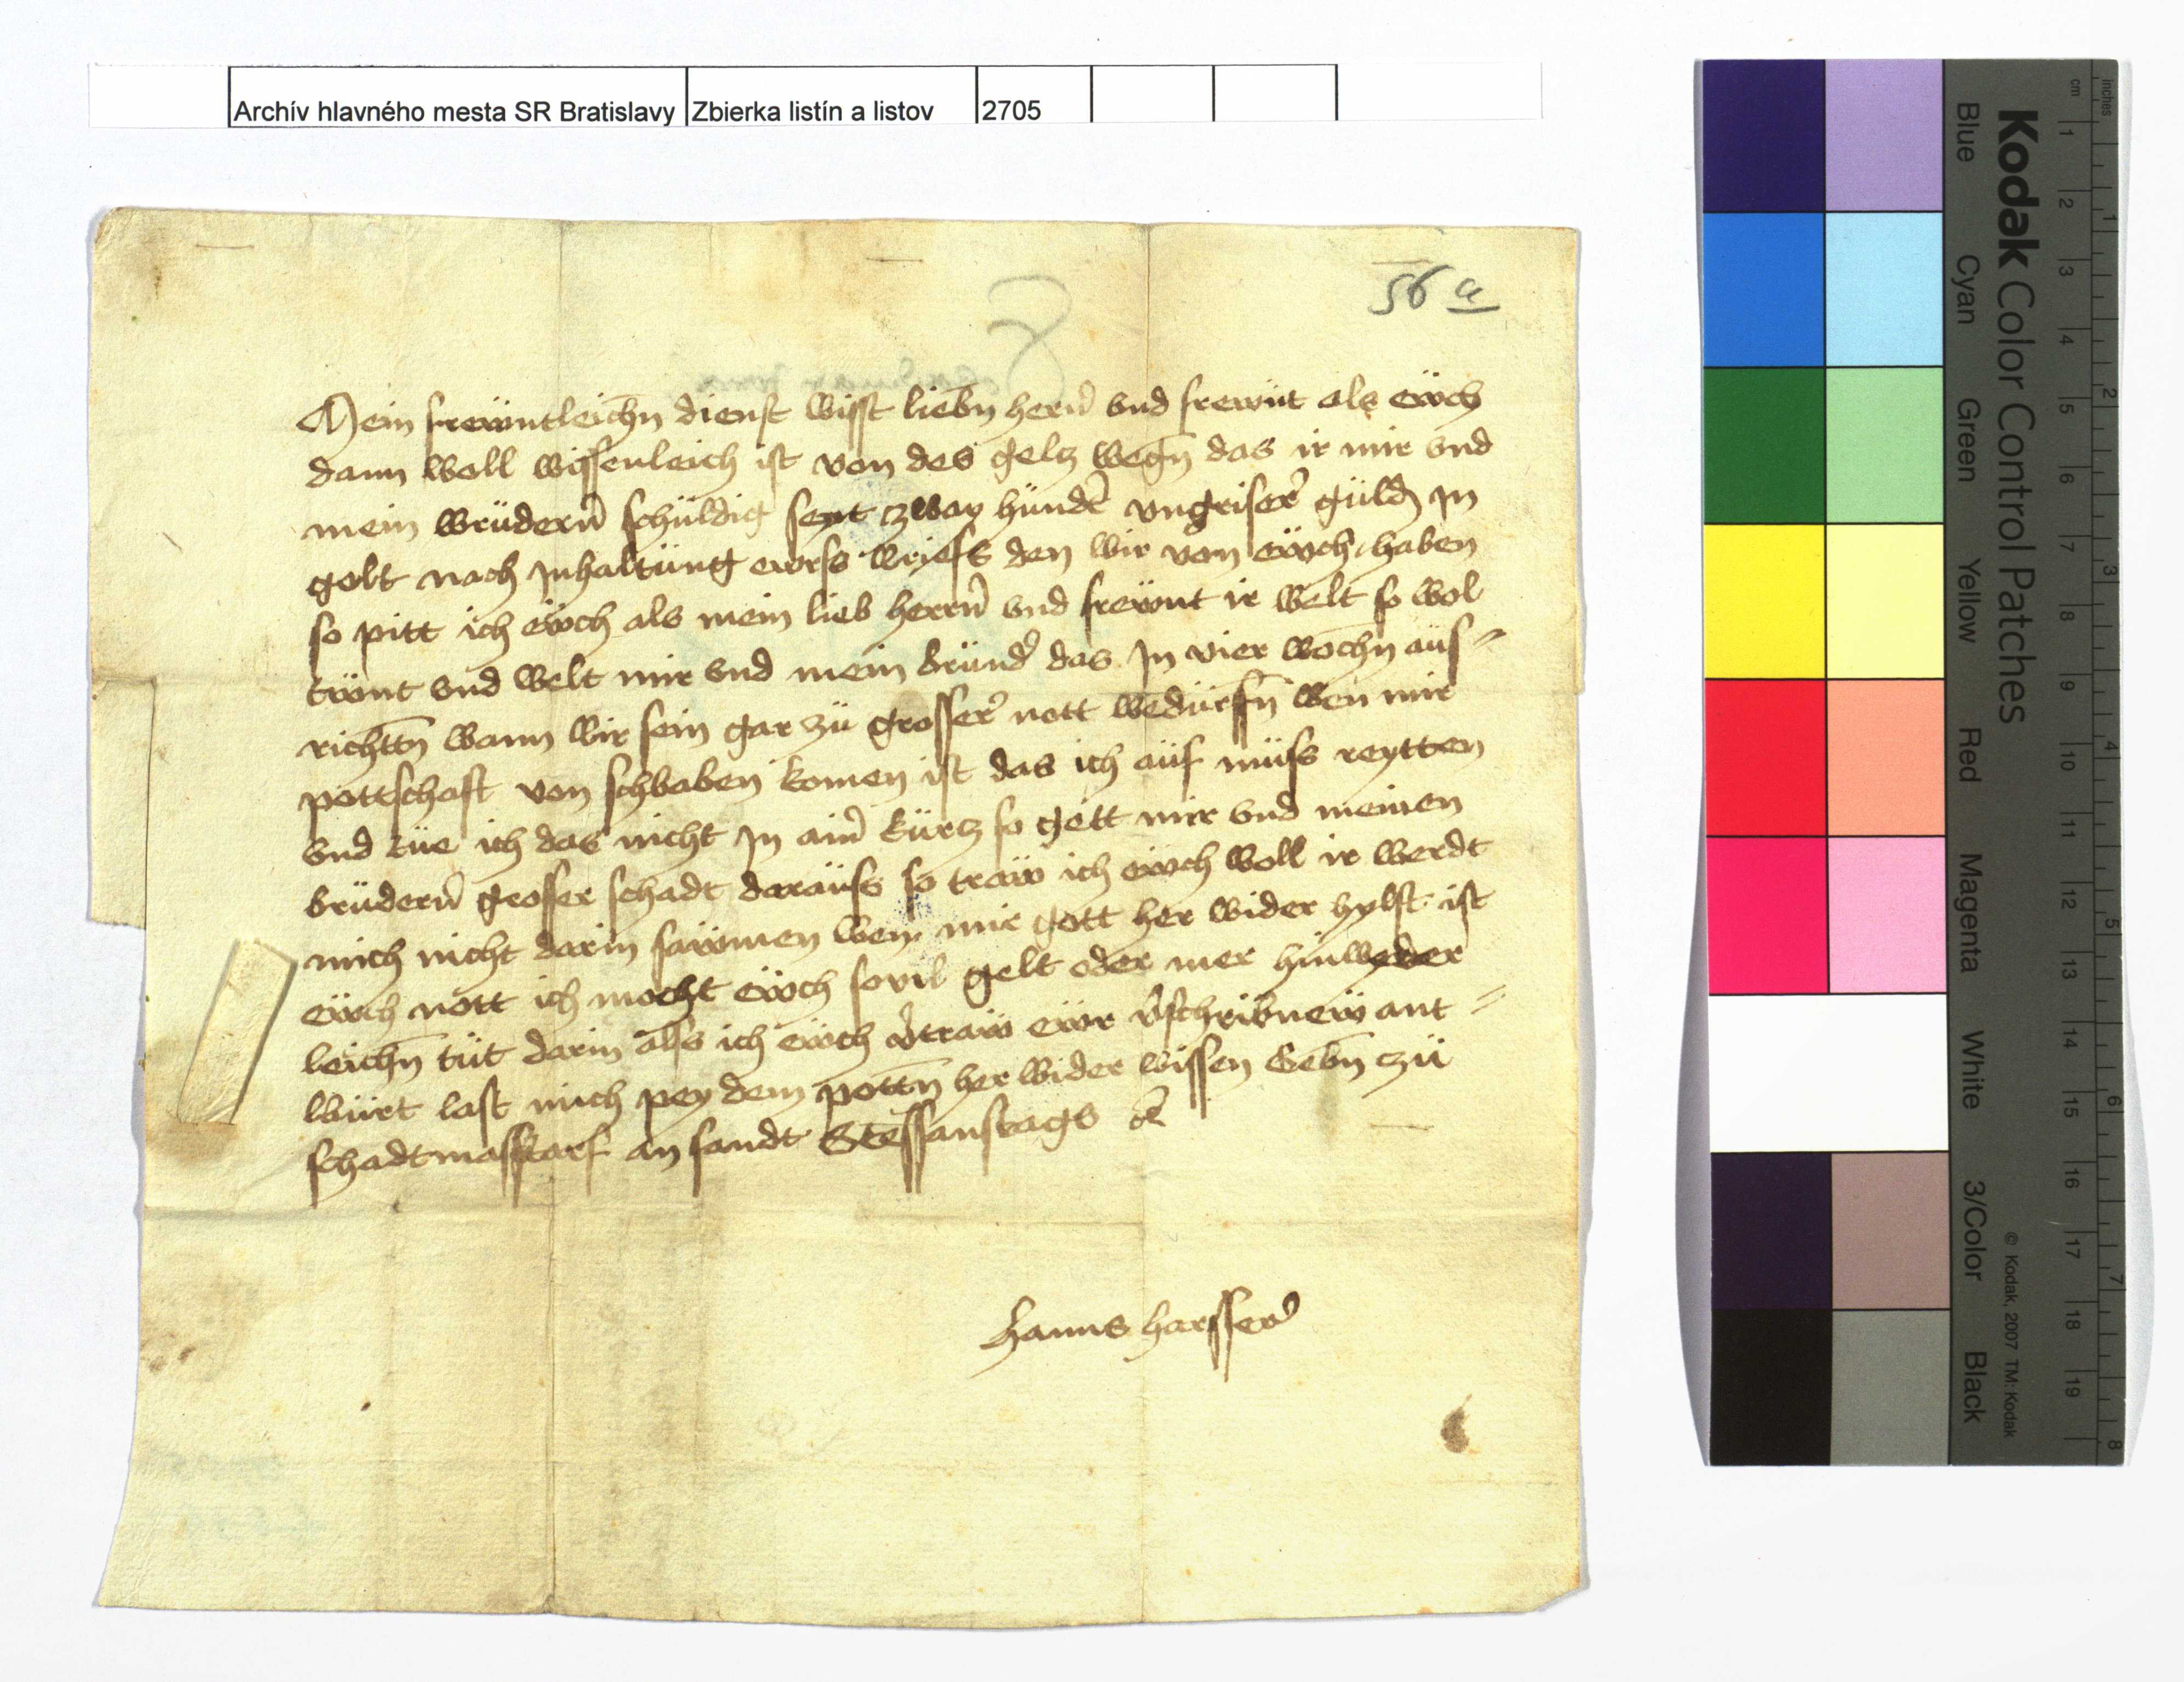 Archív hlavného mesta SR Bratislavy Zbierka listín a listov 2705
56 a
Mein frewntleichn dienst wist liebn hern vnd frewnt als ewch
dann woll wissenleich ist von des geltz wegn das ir mir vnd
mein wrüdern schüldig seyt zway hündt vngriser güldn In
golt nach Inhaltüng ewrss wriefs den wir von ewch haben
so pitt ich ewch als mein lieb herrn vnd frewnt ir welt so wol
tuont vnd welt mir vnd mein bründ das In vier wochn aüs=
richttn wann wir sein gar zü grosser nott wedürffn wen mir
pottschaft von schbaben komen ist das ich aüf müss reytten
vnd tüe ich das nicht In ain kürtz so gett mir vnd meinen
brüdern grosser schadt daraüss so traw ich ewch woll ir werdt
mich nicht darin sawmen wem mir gott her wider hylft ist
ewch nott ich mocht ewch sovil gelt oder mer hinweder
leichn tüt darin alss ich ewch vtraw ewr vschribnew ant=
würt last mich pey dem pottn her wider wissen Gebn czü
schadtmastarf an sandt Steffanstags etc
Hanns harsser
Kodak Color Control Patches
Blue Cyan Green Yellow Red Magenta White 3/Color Black
© Kodak, 2007 TM: Kodak
cm 1 2 3 4 5 6 7 8 9 10 11 12 13 14 15 16 17 18 19
inches 1 2 3 4 5 6 7 8